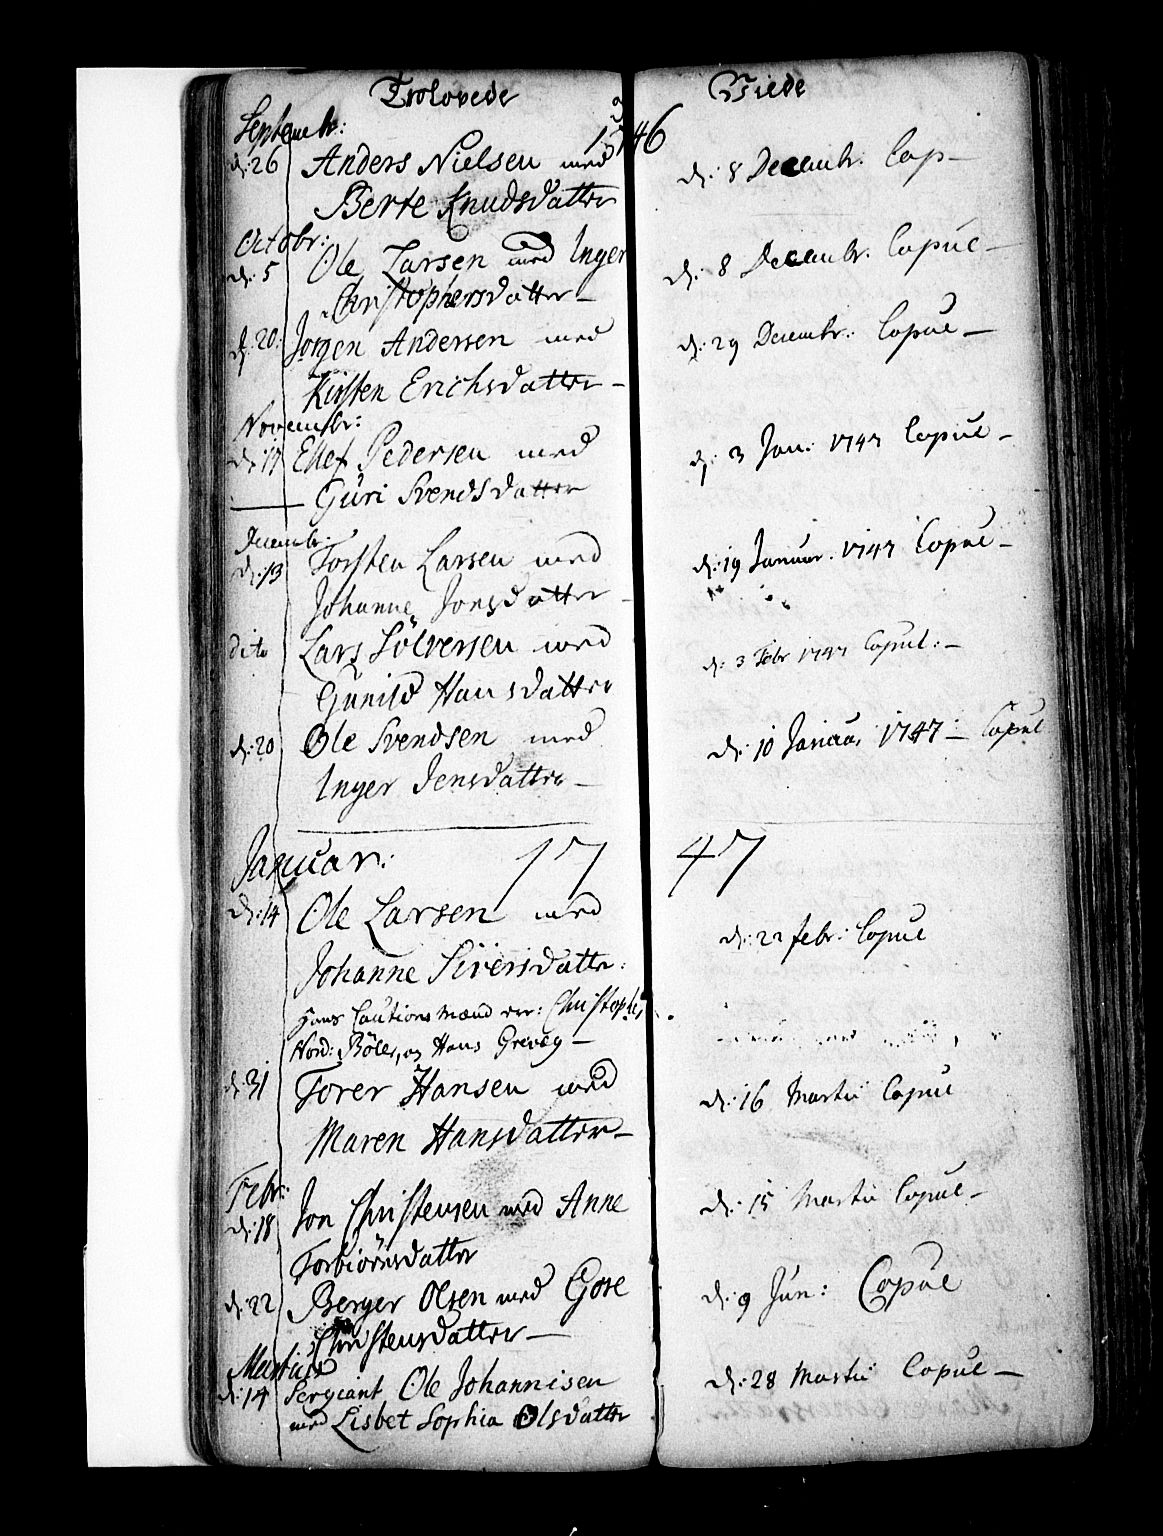 Trolovede
Viede
Septembr:
1746
d: 26 Anders Nielsen med
Berte Knudsdatter
d: 8 Decembr. Cop—
Octobr:
d: 5 Ole Larsen med Inger
Christophersdatter—
d: 8 Decembr. Copul—
d: 20: Jørgen Andersen med
Kirsten Erichsdatter—
d: 29 Decembr: Copul—
Novembr:
d: 17 Ellef Pedersen med
Guri Svendsdatter
d: 3 Jan: 1747 Copul—
Decembr:
d: 13 Torsten Larsen med
Johanne Jonsdatter—
d: 19 Januar. 1747 Copul—
dito Lars Sölversen med
Gunild Hansdatter
d: 3 Febr 1747 Copul:—
d: 20 Ole Svendsen med
Inger Jensdatter—
d: 10 Januar 1747— Copul
Januar: 1747
d: 14 Ole Larsen med
Johanne Siversdatter:
d: 22 febr: Copul
Hans Cautions Mænd er: Christopher
Nord: Böler, og Hans Greveg—
d: 31 Torer Hansen med
Maren Hansdatter—
d: 16 Martii Copul
Febr:
d: 18 Jon Christensen med Anne
Torbiörnsdatter
d: 15 Martii Copul—
d: 22 Berger Olsen med Gore
Christensdatter—
d: 9 Jun: Copul
Martius
d: 14 Sergiant Ole Johannisen
med Lisbet Sophia Olsdatter
d: 28 Martii Copul—